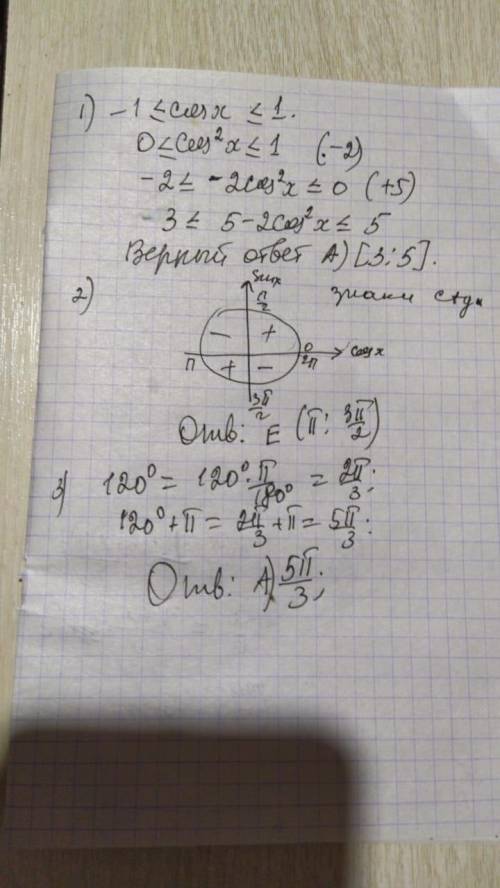 1) -1 ≤ cos x ≤ 1.
0 ≤ cos²x ≤ 1 (·-2)
-2 ≤ -2cos²x ≤ 0 (+5)
3 ≤ 5-2cos²x ≤ 5
Верный ответ А) [3; 5].
2) Sinx π/2 знаки ctgx
- + 0 cosx
π + - 2π
3π/2
Отв: E (π; 3π/2)
3) 120° = 120°·π/180° = 2π/3;
120°+π = 2π/3+π = 5π/3;
Отв: А) 5π/3;